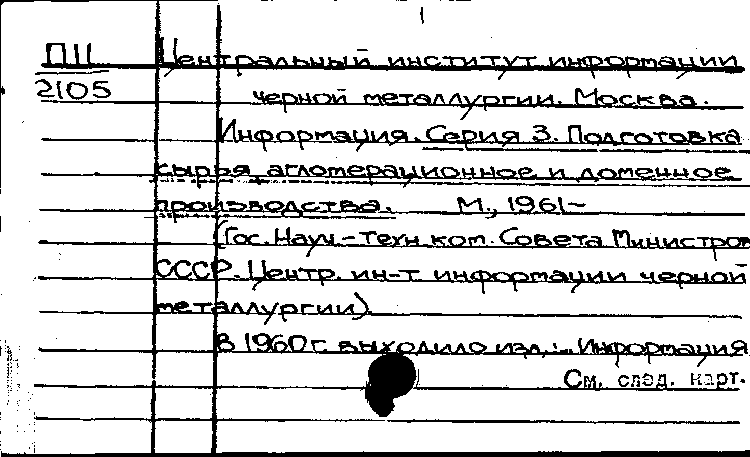 ПII Центральный институт информации
2105 черной металлургии. Москва.
Информация. Серия 3. Подготовка
сырья, агломерационное и доменное
производства. М., 1961–
(Гос. Науч.-техн. ком. Совета Министров
СССР. Центр. ин-т информации черной
металлургии).
В 1960 г. выходило изд.: Информация
См. след. карт.